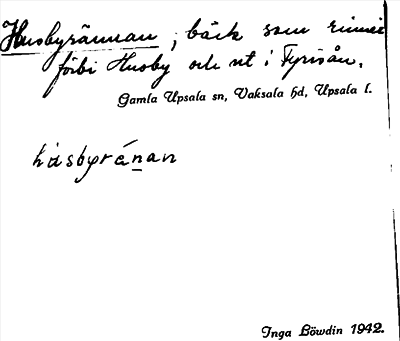 Husbyrännan, bäck som rinner
förbi Husby och ut i Fyrisån.
Gamla Upsala sn, Vaksala hd, Upsala l.
hùsbyrénan
Inga Löwdin 1942.